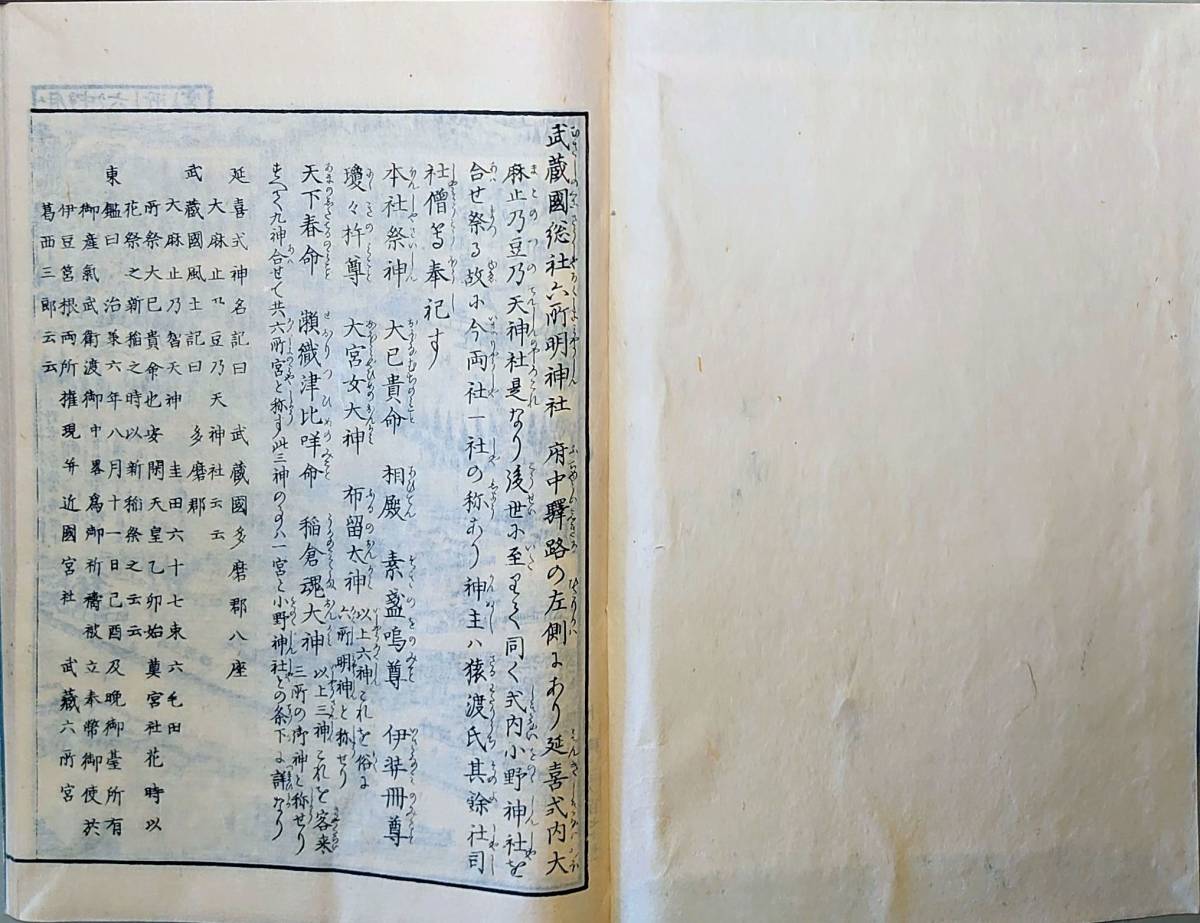 武蔵國総社六所明神社　府中驛路の左側にあり延喜式内大
麻止乃豆乃天神社是なり後世に至りて同く式内小野神社を
合せ祭る故に今両社一社の称あり神主ハ猿渡氏其餘社司
社僧等奉祀す
本社祭神　大已貴命　相殿　素盞嗚尊　伊弉冊尊
瓊々杵尊　大宮女大神　布留大神　以上六神これを俗に六所明神と称せり
天下春命　瀬織津比咩命　稲倉魂大神　以上三神これを客来三所の御神と称せり
すべて九神合せて共六所宮と称す此三神の事ハ一宮と小野神社との条下に詳なり
延喜式神名記曰　武蔵國多磨郡八座
大麻止乃豆乃天神社云云
武蔵國風土記曰　多磨郡
大麻止乃智天神　圭田六十七束六毛田
所祭大已貴命也安閑天皇乙卯始奠宮社花時以
花祭之新稲之時以新稲祭之云云
東鑑曰　治承六年八月十一日己酉及晩御臺所有
御産氣武衛渡御中畧為御祈禱被立奉幣御使於
伊豆筥根両所権現并近國宮社　武蔵六所宮
葛西三郎云云